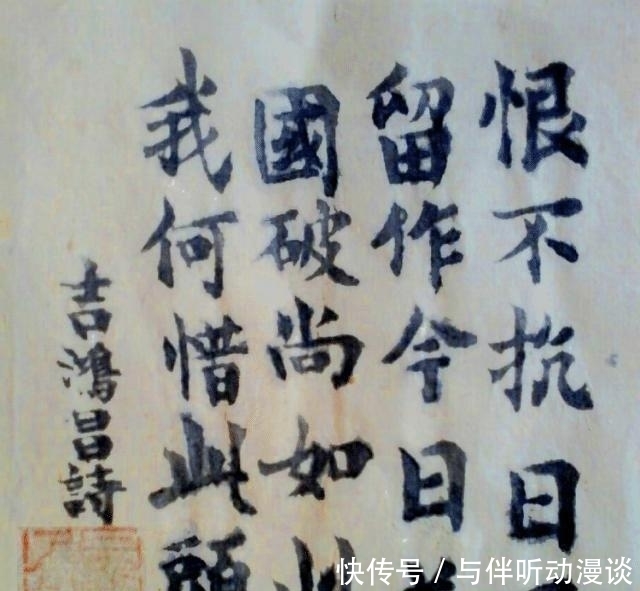 恨不抗日
留作今日
國破尚如
我何惜此頭
吉鴻昌詩
快传号 / 与伴听动漫谈